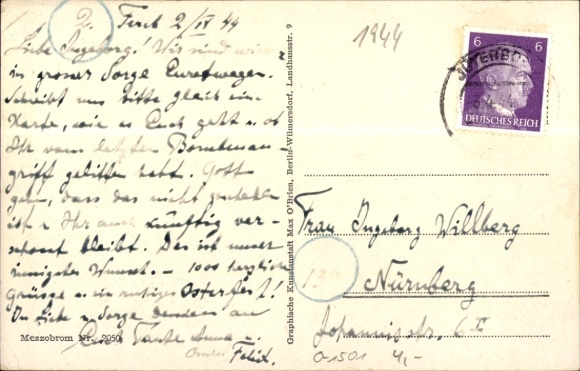 2. Ferch 2/IV 44
Liebe Ingeborg! Wir sind wieder
in grosser Sorge Euretwegen.
Schreibt uns bitte gleich eine
Karte, wie es Euch geht u. ob
Ihr vom letzten Bombenan-
griff gelitten habt. Gott
gebe, dass das nicht geschehen
ist u. Ihr auch künftig ver-
schont bleibt. Das ist unser
innigster Wunsch. – 1000 herzliche
Grüsse u. ein ruhiges Osterfest!
In Liebe u. Sorge denken an
Euch Tante Anna u.
Felix.
Mezzobrom Nr. 2050
Graphische Kunstanstalt Max O'Brien, Berlin-Wilmersdorf, Landhausstr. 9
1944
6 6
JÜTERBOG
DEUTSCHES REICH
Frau Ingeborg Willberg
13a
Nürnberg
Johannisstr. 6 I
01501 4,-